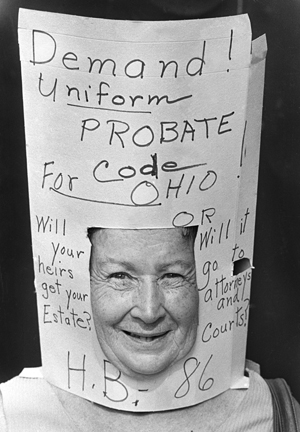 Demand!
Uniform
PROBATE
Code
For OHIO!
OR
Will
your
heirs
get your
Estate?
Will it
go to
attorneys
and
Courts?
H.B.- 86